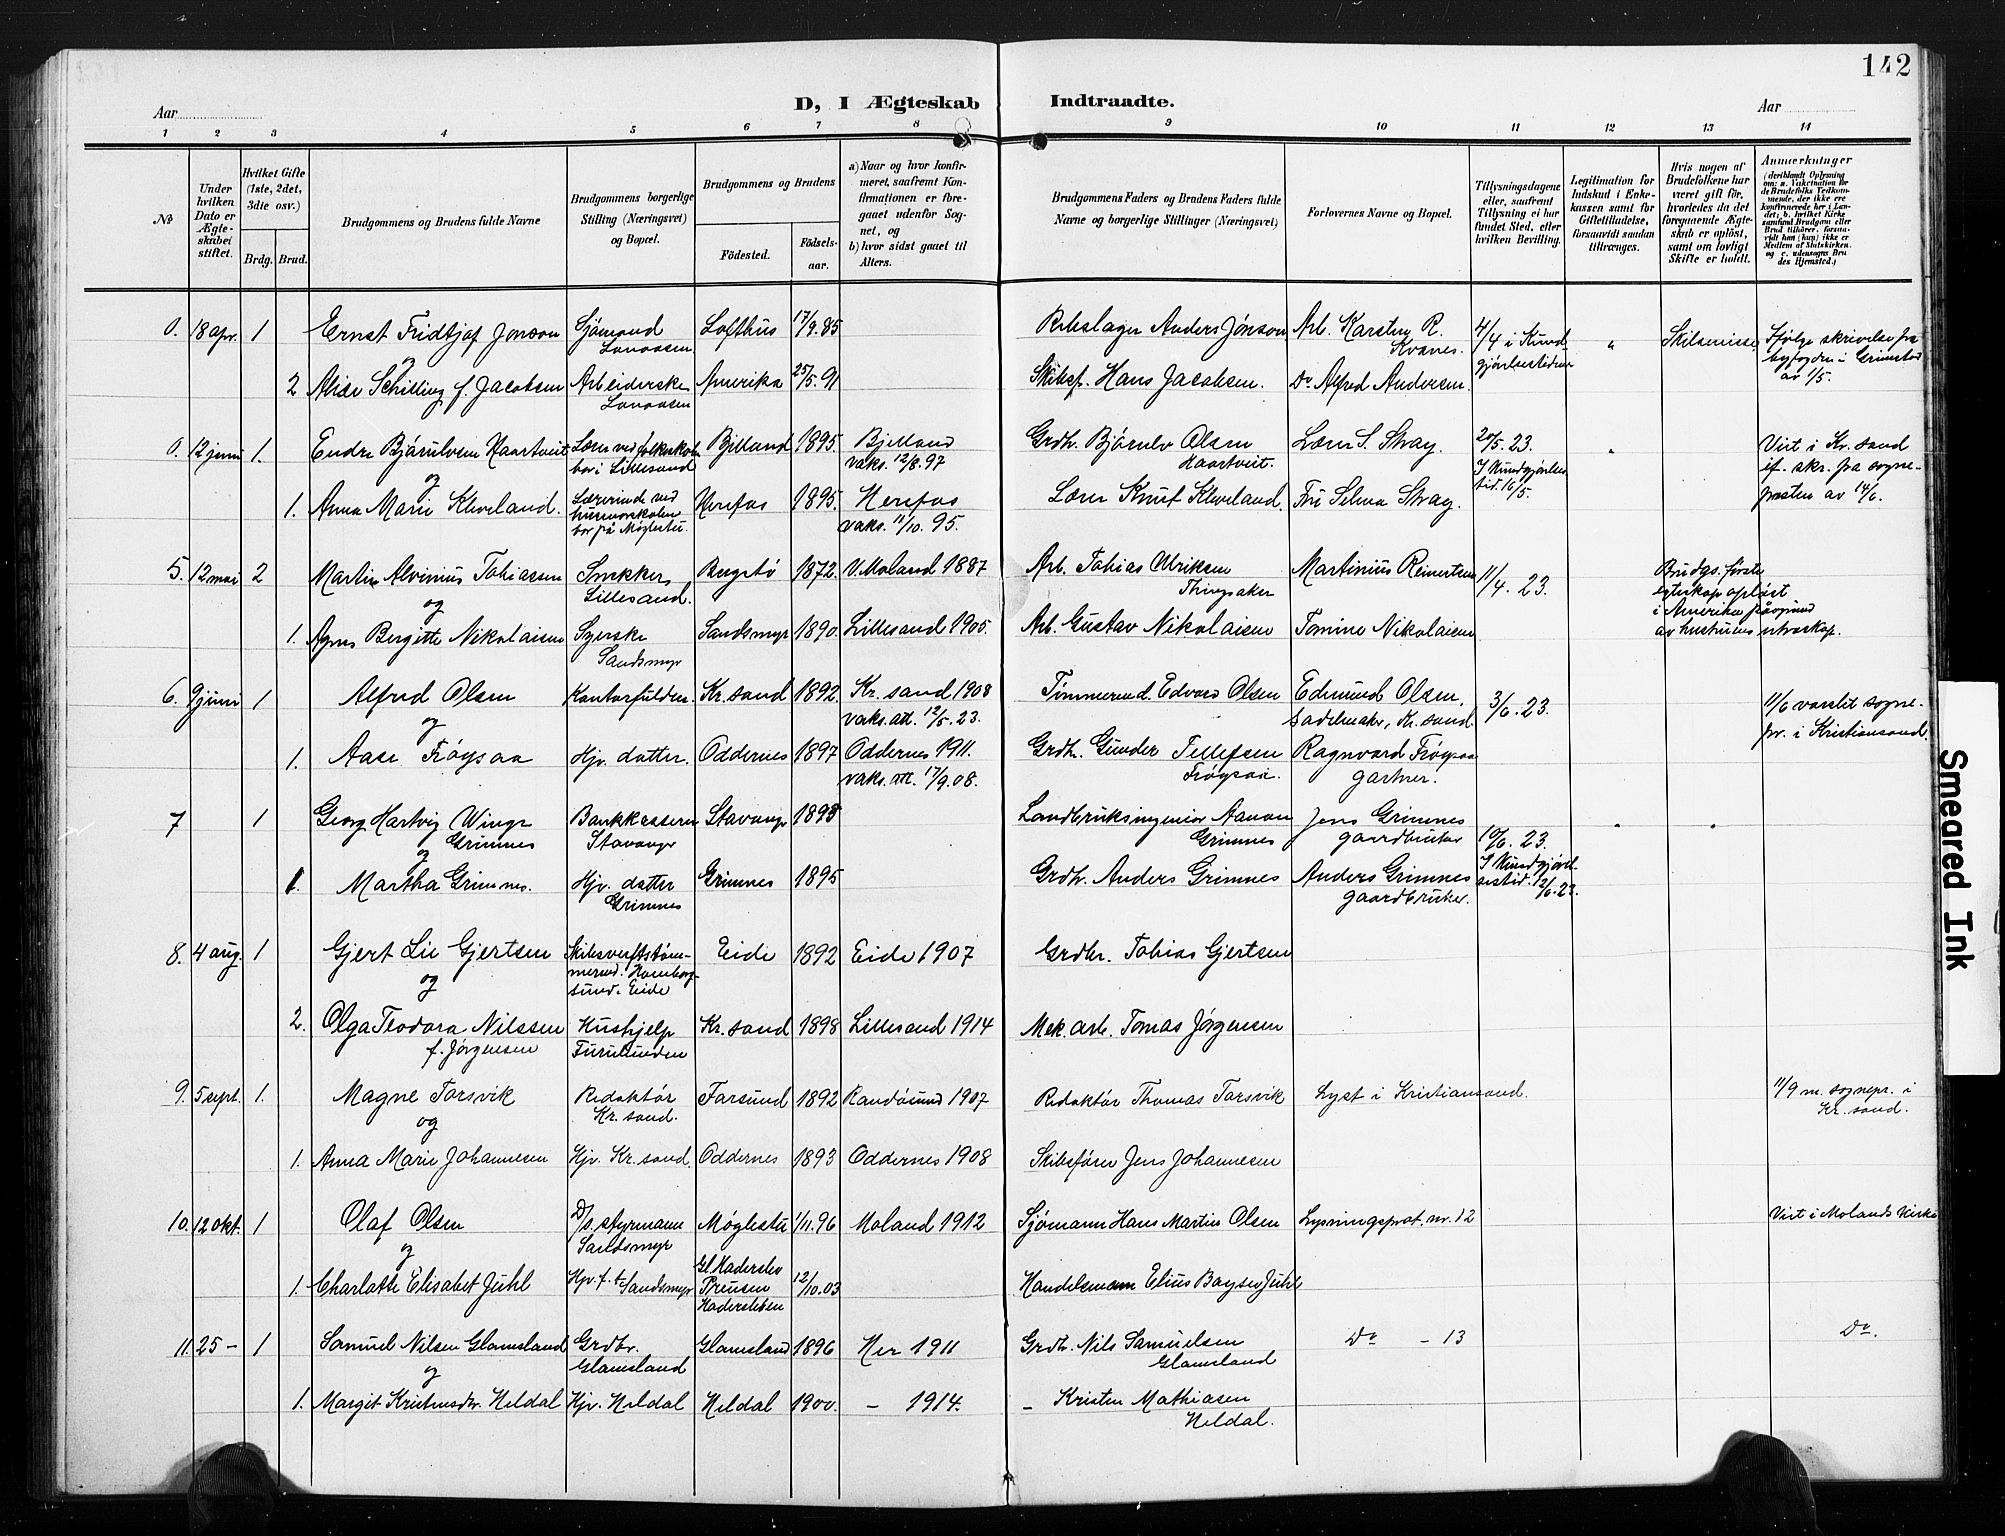 142
D, I Ægteskab Indtraadte.
Aar Aar
1 2 3 4 5 6 7 8 9 10 11 12 13 14
No
Under hvilken Dato er Ægteskabet stiftet.
Hvilket Gifte (1ste, 2det, 3die osv.)
Brdg. Brud.
Brudgommens og Brudens fulde Navne
Brudgommens borgerlige Stilling (Næringsvei) og Bopæl.
Brudgommens og Brudens
Födested. Födselsaar.
a) Naar og hvor konfirmeret, saafremt Konfirmationen er foregaaet udenfor Sognet, og
b) hvor sidst gaaet til Alters.
Brudgommens Faders og Brudens Faders fulde Navne og borgerlige Stillinger (Næringsvei)
Forlovernes Navne og Bopæl.
Tillysningsdagene eller, saafremt Tillysning ei har fundet Sted, efter hvilken Bevilling.
Legitimation for Indskud i Enkekassen samt for Giftetilladelse, forsaavidt saadan tiltrænges.
Hvis nogen af Brudefolkene har været gift før, hvorledes da det foregaaende Ægteskab er opløst, samt om lovligt Skifte er holdt.
Anmerkninger
(deriblandt Oplysning om: a. Vakcination for de Brudefolks Vedkommende, der ikke ere konfirmerede her i Landet; b. hvilket Kirkesamfund Brudgom eller Brud tilhører, forsaavidt han (hun) ikke er Medlem af Statskirken, og c. udensogns Brudes Hjemsted.)
0. 18 apr. 1 Ernst Fridtjof Jonson Sjömand Lofthus 17/9. 85 Rebslager Anders Jönson Arb. Karsten R. Kvanes. 4/4 i Kundgjörelsestidene " Skilsmisse Ifölge skrivelse fra byfogden i Grimstad av 1/5.
og
2 Alise Schilling f. Jacobsen Arbeiderske Amerika 25/5. 91 Skibsf. Hans Jacobsen. Do Alfred Andersen.
0. 12 juni 1. Endre Bjørulvsen Haartveit Lærer ved folkeskolen bor i Lillesand Bjelland 1895 Bjelland vaks. 12/8. 97 Grdb. Bjørulv Olsen Haartveit. Lærer S. Stray. 20/5. 23. I Kundgjörelsestid. 16/5. " Viet i Kr.sand ef. skr. fra sognepresten av 14/6.
og
1. Anna Marie Kleveland. Lærerinde ved husmorskolen bor på Møglestu. Herefos 1895. Herefos vaks. 11/10. 95. Lærer Knut Kleveland. Fru Selma Stray.
5. 12 mai 2 Martin Alvinius Tobiassen Snekker, Lillesand. Bergstø 1872. V. Moland 1887 Arb. Tobias Ulriksen Thingsaker Martinius Reinertsen 11/4. 23. Brudgs. første egteskap opløst i Amerika på grund av hustruens utroskap.
og
1. Agnes Bergitte Nikolaisen Syerske Sandsmyr Sandsmyr 1890. Lillesand 1905. Arb. Gustav Nikolaisen Tomine Nikolaisen
6. 9 juni 1 Alfred Olsen Kontorfuldm. Kr.sand 1892 Kr.sand 1908 vaks. att. 12/5. 23. Tømmermd. Edvard Olsen Edmund Olsen, Sadelmaker, Kr.sand. 3/6. 23. 11/6 varslet sognepr. i Kristiansand.
og
1. Aase Frøysaa Hjv. datter. Oddernes 1897 Oddernes 1911. vaks. att. 17/9. 08. Grdb. Gunder Tellefsen Frøysaa. Ragnvard Frøysaa gartner.
7 1 Georg Hartvig Winge Grimnes Bankkasserer Stavanger Stavanger 1898 Landbruksingeniør Aanon Grimnes Jens Grimnes gaardbruker 10/6. 23. I Kundgjörelsestid. 12/6. 23. " "
og
1. Martha Grimnes. Hjv. datter Grimnes Grimnes 1895 Grdb. Anders Grimnes Anders Grimnes gaardbruker.
8. 4 aug. 1 Gjert Lie Gjertsen Skibsverftstømmermd. Homborsund. Eide Eide 1892 Eide 1907 Grdbr. Tobias Gjertsen
og
2. Olga Teodora Nilssen f. Jørgensen Hushjelp Furulunden Kr.sand 1898 Lillesand 1914 Mek. arb. Tomas Jørgensen
9. 5 sept. 1. Magne Torsvik Redaktør Kr.sand. Farsund 1892 Randøsund 1907 Redaktør Thomas Torsvik Lyst i Kristiansand. 11/9 m. sognepr. i Kr.sand.
og
1. Anna Marie Johannesen Hjv. Kr.sand. Oddernes 1893 Oddernes 1908 Skibsfører Jens Johannesen
10. 12 okt. 1 Olaf Olsen D/s. styrmann Sandsmyr Møglestu 1/11. 96 Moland 1912 Sjømann Hans Martin Olsen Lysningsprot. nr. 12 Viet i Molands kirke
og
1. Charlotte Elisabet Juhl Hjv. f. t. Sandsmyr Gl. Haderslev Preusen Hadersleben 12/10. 03 Handelsmann Elius Boysen Juhl
11. 25 – 1 Samuel Nilsen Glamsland Grdbr. Glamsland Glamsland 1896 Her 1911 Grdb. Nils Samuelsen Glamsland Do – 13 Do.
og
1. Margit Kristensdtr. Heldal Hjv. Heldal Heldal 1900. – 1914. – Kristen Mathiasen Heldal.
Smeared Ink